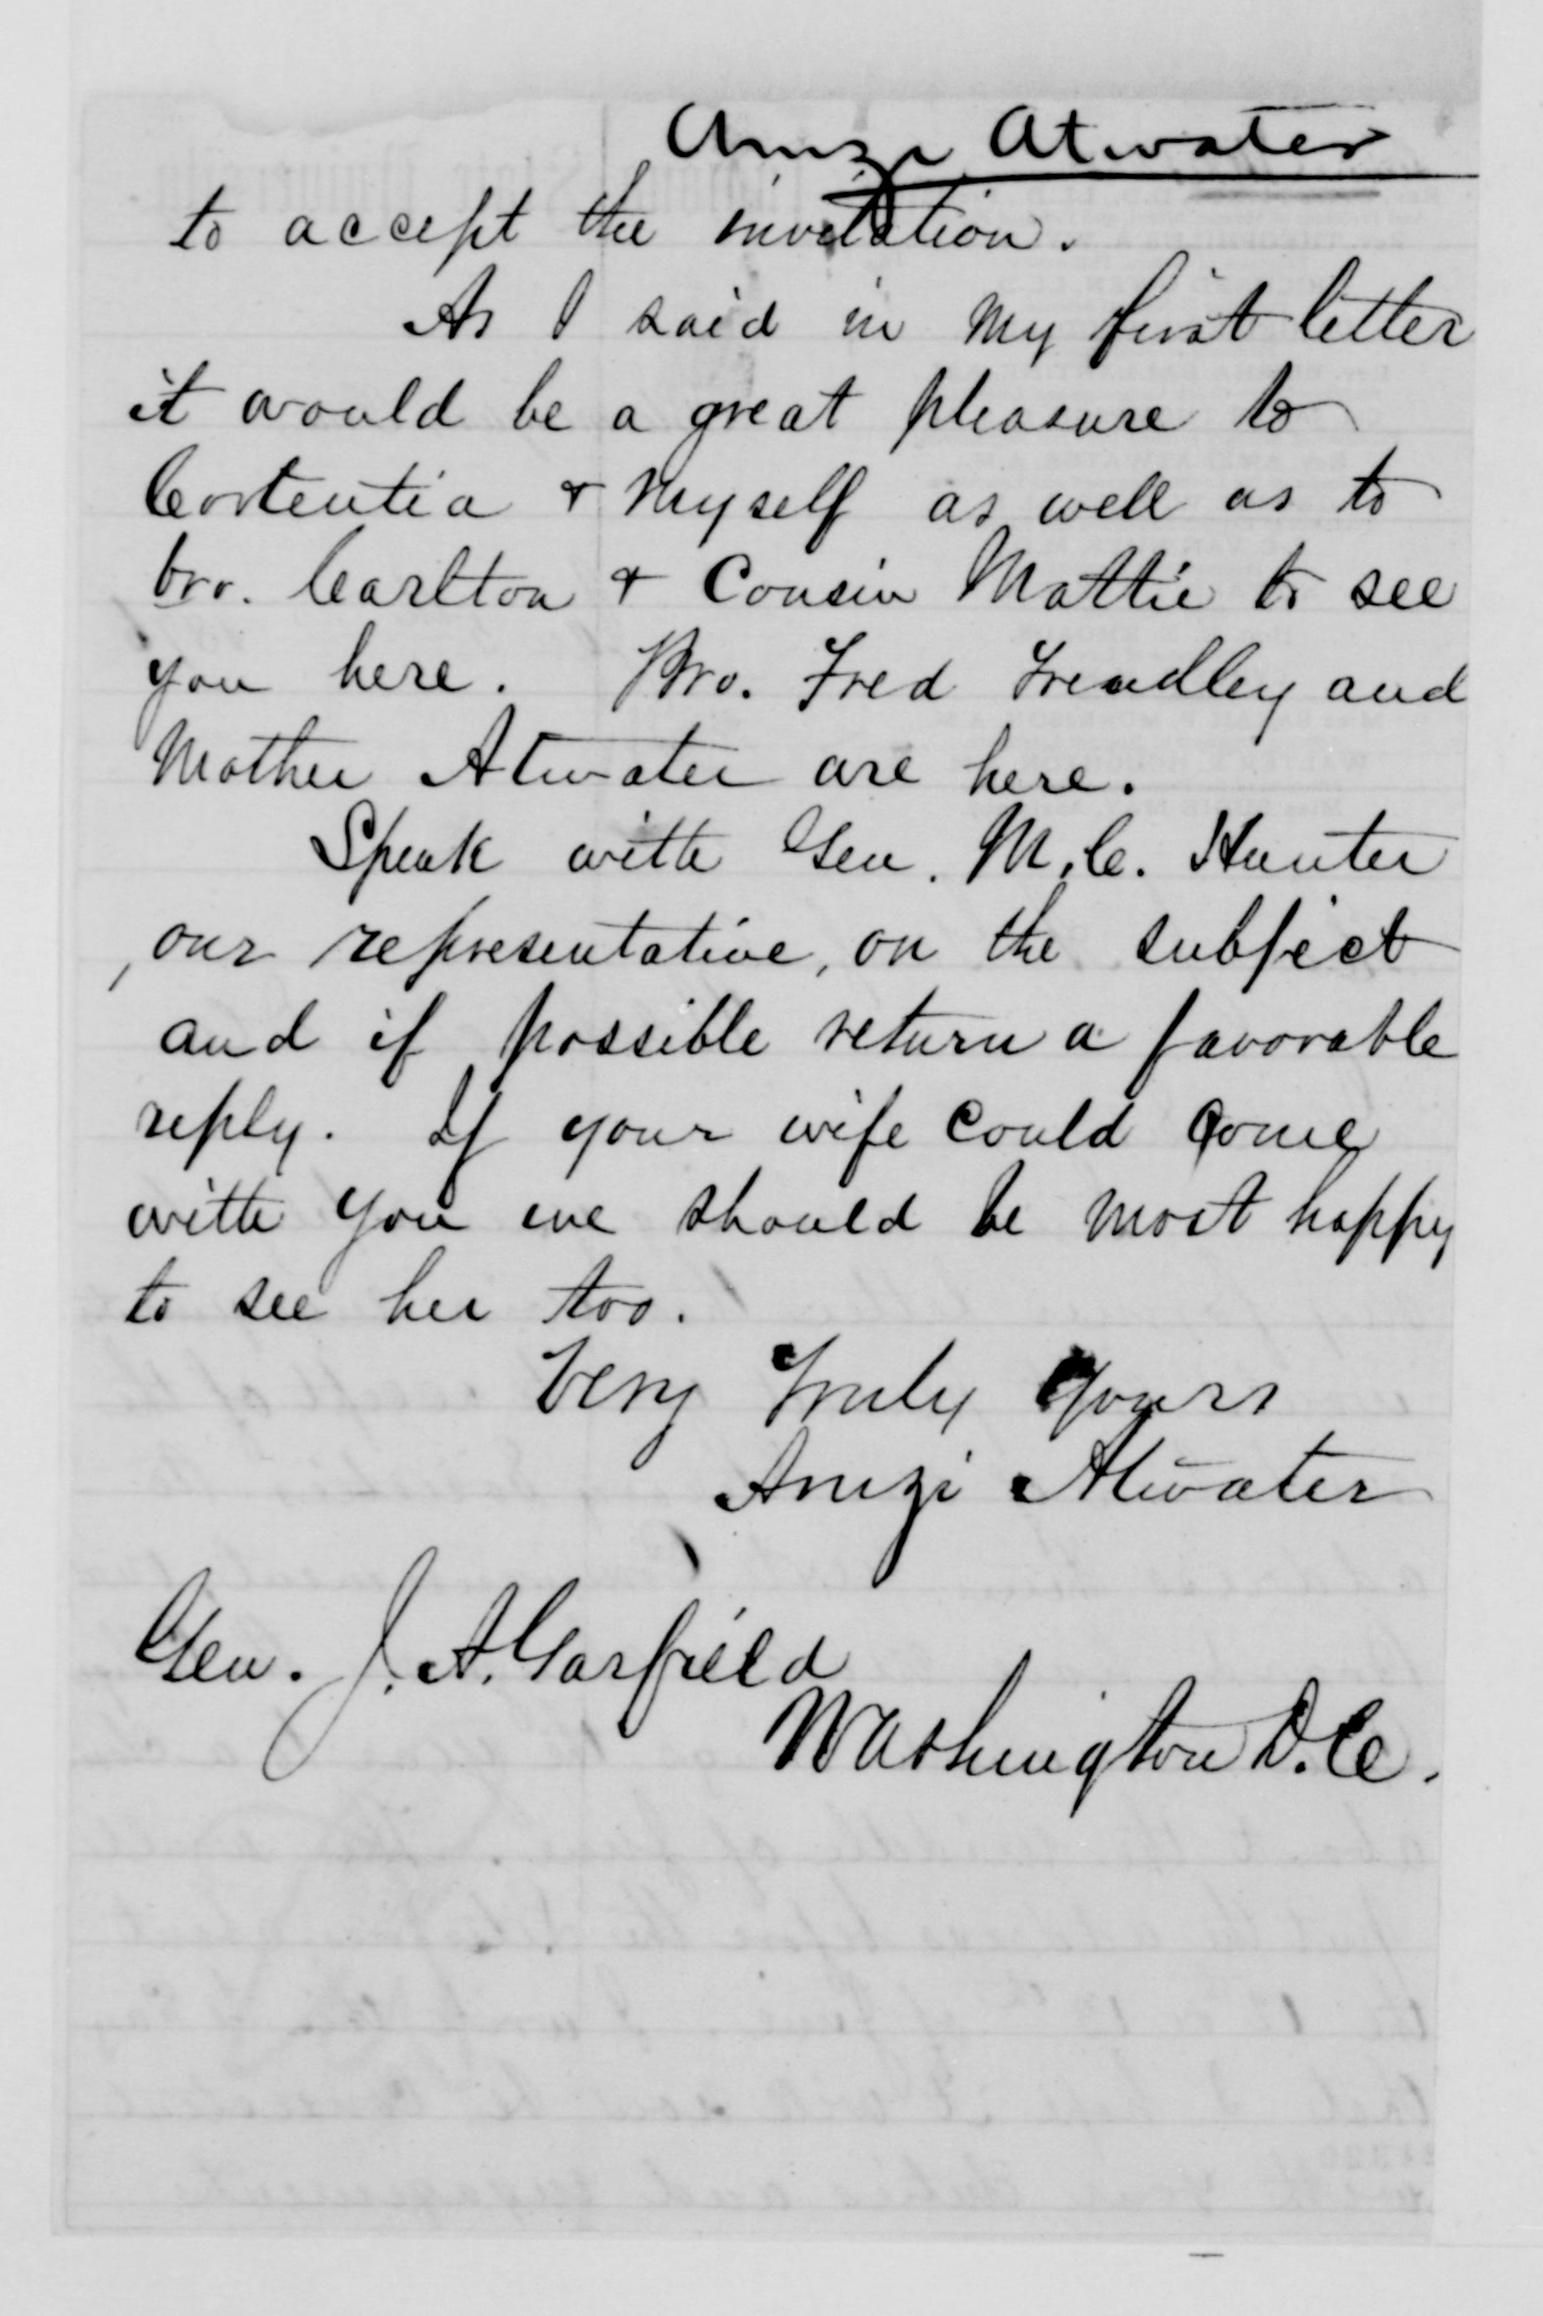 Amzi Atwater
to accept the invitation.
As I said in my first letter
it would be a great pleasure to
Cortentia & myself as well as to
bro. Carlton & Cousin Mattie to see
you here. Bro. Fred Treudley and
Mother Atwater are here.
Speak with Gen. M. C. Hunter
, our representative, on the subject
and if possible return a favorable
reply. If your wife could come
with you we should be most happy
to see her too.
Very Truly Yours
Amzi Atwater
Gen. J. A. Garfield
Washington D. C.